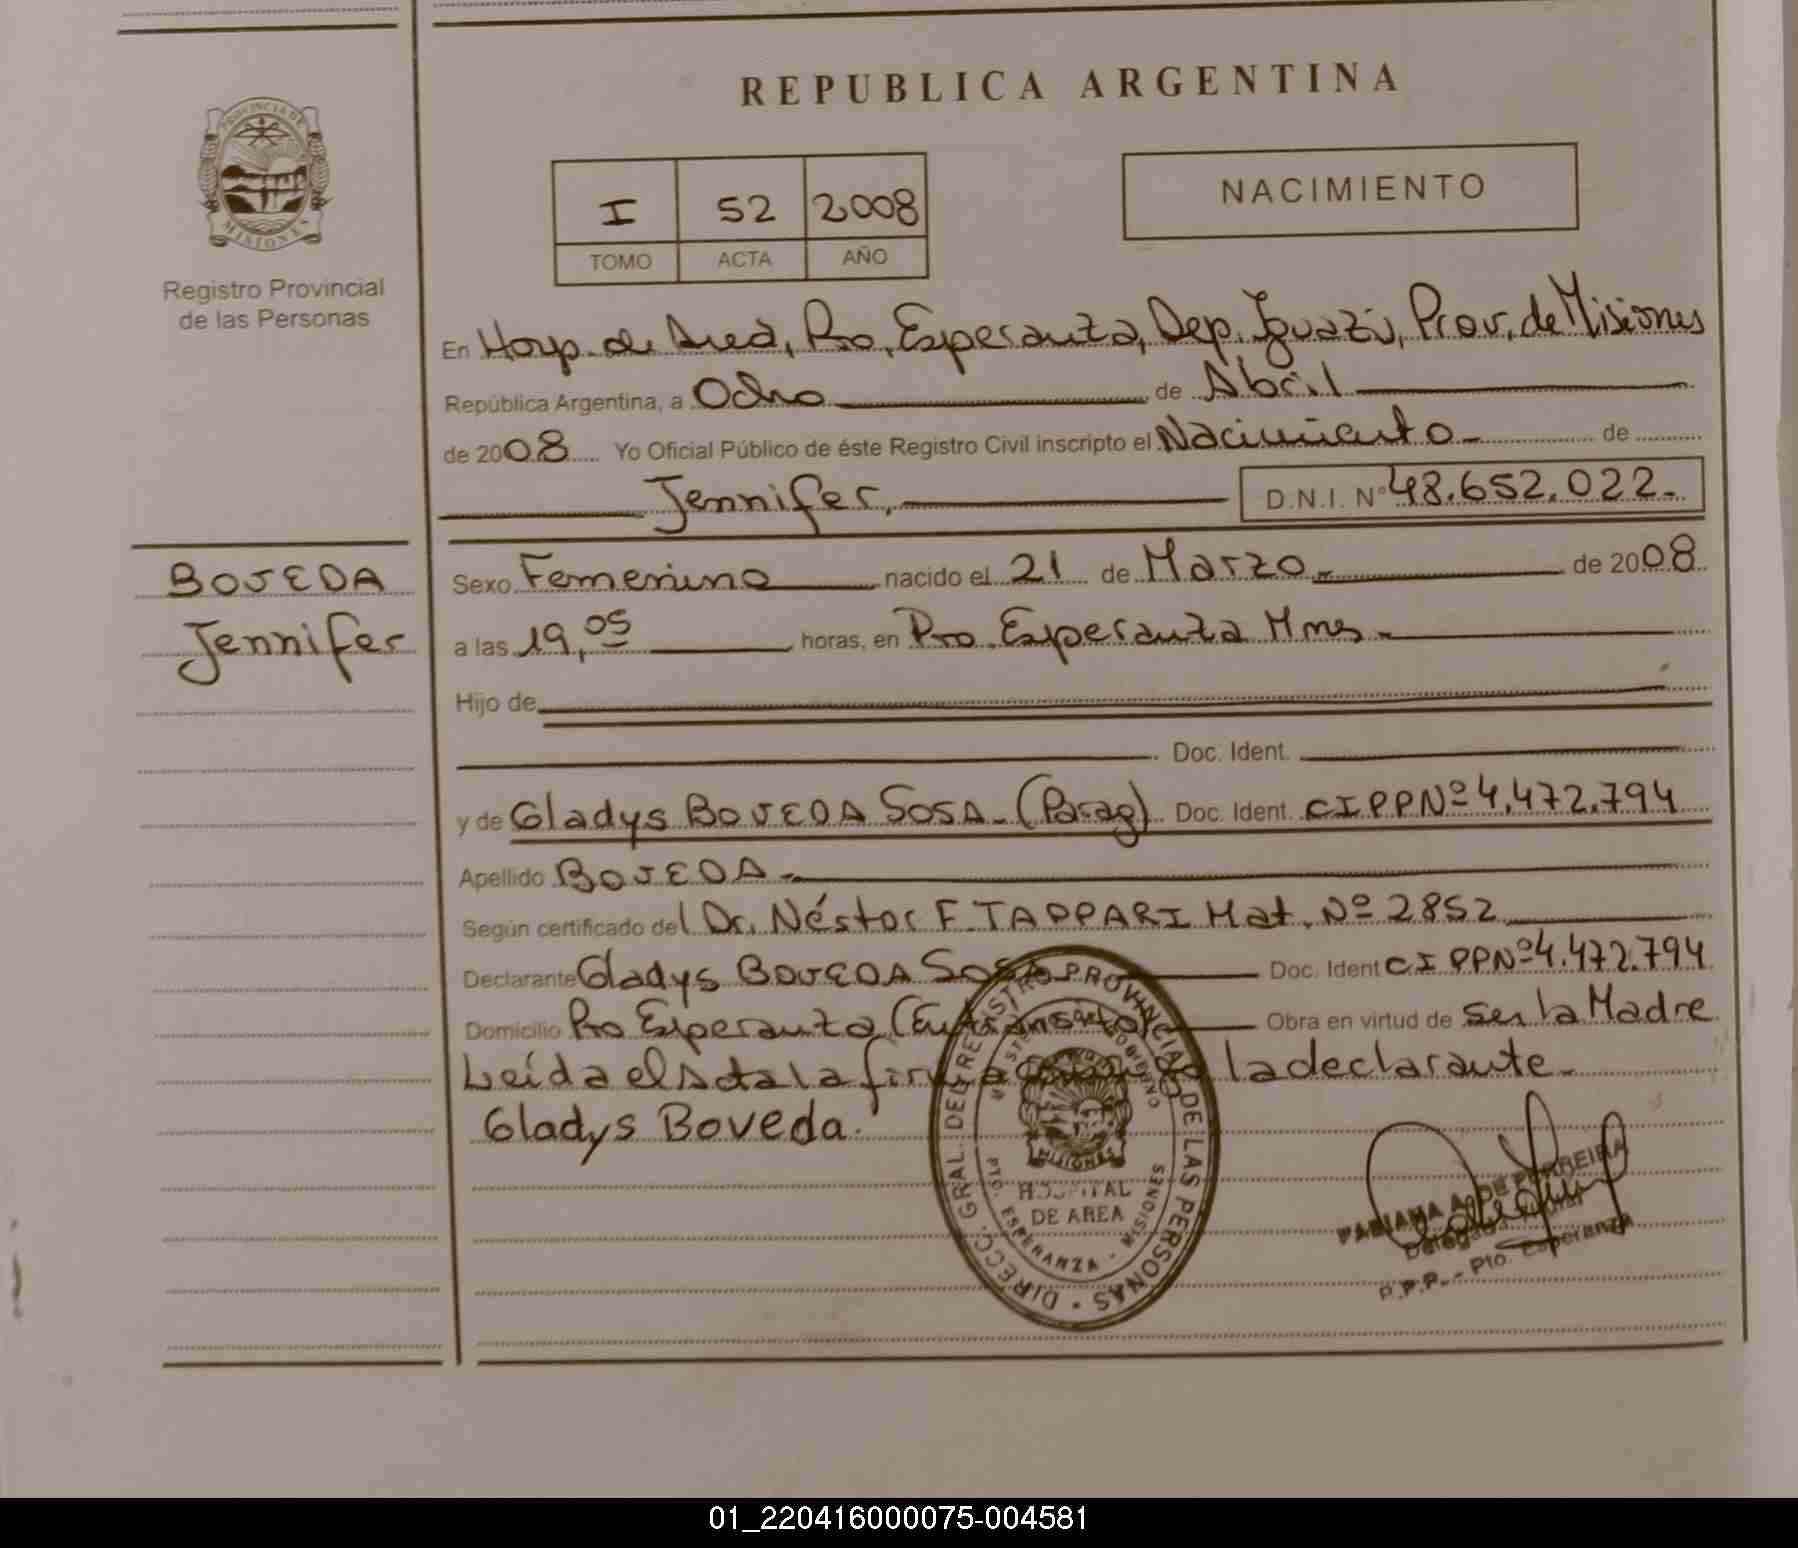 REPUBLICA ARGENTINA
PROVINCIA DE
MISIONES
Registro Provincial
de las Personas
I 52 2008
TOMO ACTA AÑO
NACIMIENTO
En Hosp. de Area, Pto. Esperanza, Dep. Iguazú, Prov. de Misiones
República Argentina, a Ocho de Abril
de 2008 Yo Oficial Público de éste Registro Civil inscripto el Nacimiento de
Jennifer, D.N.I. Nº 48.652.022.
BOVEDA
Jennifer
Sexo Femenino nacido el 21 de Marzo de 2008
a las 19,05 horas, en Pto. Esperanza Mnes
Hijo de
Doc. Ident.
y de Gladys BOVEDA SOSA (Parag) Doc. Ident. CIPPNº 4.472.794
Apellido BOVEDA
Según certificado del Dr. Néstor F. TAPPARI Mat. Nº 2852
Declarante Gladys BOVEDA SOSA Doc. Ident CI PPNº 4.472.794
Domicilio Pto Esperanza (En transito) Obra en virtud de ser la Madre
Leída el Acta la firma la declarante
Gladys Boveda.
DIRECC. GRAL. DEL REGISTRO PROVINCIAL DE LAS PERSONAS
MISIONES
HOSPITAL
DE AREA
PTO. ESPERANZA - MISIONES
FABIANA A. DE FERREIRA
P.P.P. - Pto. Esperanza
01_220416000075-004581